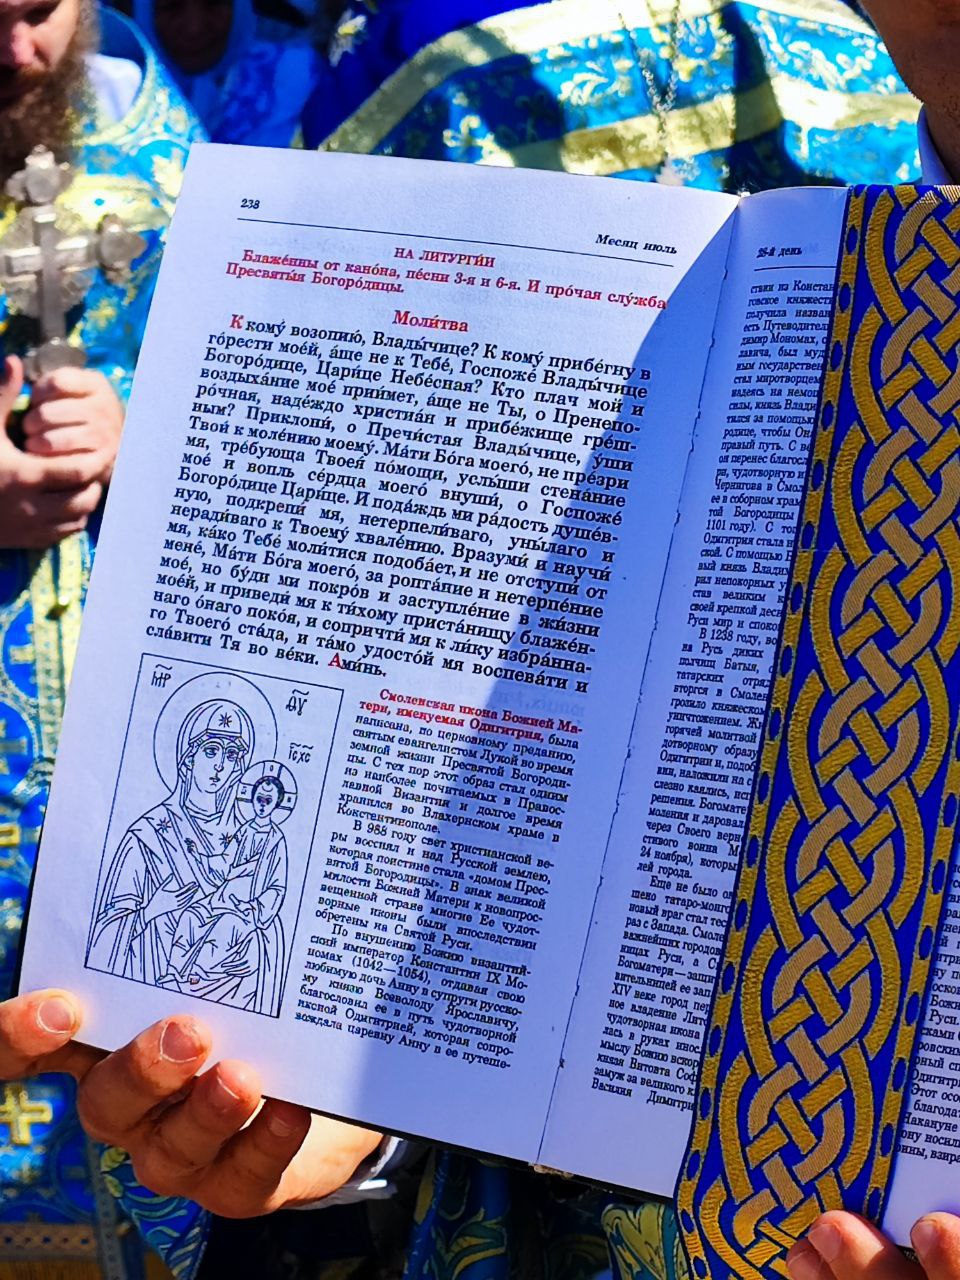 238
Месяц июль
НА ЛИТУРГИ́И
Блаже́нны от кано́на, пе́сни 3-я и 6-я. И про́чая слу́жба
Пресвяты́я Богоро́дицы.
Моли́тва
К кому́ возопию́, Влады́чице? К кому́ прибе́гну в
го́рести мое́й, а́ще не к Тебе́, Госпоже́ Влады́чице
Богоро́дице, Цари́це Небе́сная? Кто плач мой и
воздыха́ние мое́ прии́мет, а́ще не Ты, о Пренепо-
ро́чная, наде́ждо христиа́н и прибе́жище гре́ш-
ным? Приклони́, о Пречи́стая Влады́чице, у́ши
Твои́ к моле́нию моему́. Ма́ти Бо́га моего́, не пре́зри
мя, тре́бующа Твоея́ по́мощи, услы́ши стена́ние
мое́ и вопль се́рдца моего́ внуши́, о Госпоже́
Богоро́дице Цари́це. И пода́ждь ми ра́дость душе́в-
ную, подкрепи́ мя, нетерпели́ваго, уны́лаго и
неради́ваго к Твоему́ хвале́нию. Вразуми́ и научи́
мя, ка́ко Тебе́ моли́тися подоба́ет, и не отступи́ от
мене́, Ма́ти Бо́га моего́, за ропта́ние и нетерпе́ние
мое́, но бу́ди ми покро́в и заступле́ние в жи́зни
мое́й, и приведи́ мя к ти́хому приста́нищу блаже́н-
наго о́наго поко́я, и сопричти́ мя к ли́ку избра́нна-
го Твоего́ ста́да, и та́мо удосто́й мя воспева́ти и
сла́вити Тя во ве́ки. Ами́нь.
Смоленская икона Божией Ма-
тери, именуемая Одигитрия, была
написана, по церковному преданию,
святым евангелистом Лукой во время
земной жизни Пресвятой Богороди-
цы. С тех пор этот образ стал одним
из наиболее почитаемых в Право-
славной Византии и долгое время
хранился во Влахернском храме в
Константинополе.
В 988 году свет христианской ве-
ры воссиял и над Русской землею,
которая поистине стала «домом Прес-
вятой Богородицы». В знак великой
милости Божией Матери к новопрос-
вещенной стране многие Ее чудот-
ворные иконы были впоследствии
обретены на Святой Руси.
По внушению Божию византий-
ский император Константин IX Мо-
номах (1042—1054), отдавая свою
любимую дочь Анну в супруги русско-
му князю Всеволоду Ярославичу,
благословил ее в путь чудотворной
иконой Одигитрией, которая сопро-
вождала царевну Анну в ее путеше-
28-й день
ствии из
говское княжеств
получила назван
есть Путеводител
димир Мономах, с
был муд
ным государствен
стал миротворцем
надеясь на немощ
силы, князь Влади
тился за помощью
родице, чтобы Он
правый путь. С
он перенес благосл
ри, чудотворную и
Чернигова в Смол
ее в соборном храм
той Богородицы
1101 году). С
Одигитрия стала
ской. С помощью
вый князь Влади
рил непокорных у
став великим
своей крепкой
Руси мир и споко
В 1238 году, во
на Русь диких
полчищ Батыя,
татарских отряд
вторгся в Смолен
грозило княжеском
уничтожением.
горячей молитвой
дотворному образу
Одигитрии и, подоб
наложили на с
слезно каялись,
решения. Богомате
моления и даровал
через Своего верн
стивого воина М
24 ноября), которы
лей города.
Еще не было
шено татаро-монго
новый враг стал тес
раз с Запада. Смоле
важнейших городов
ницах Руси, а С
Богоматери — защи
вительницей ее зап
XIV веке город пер
ное владение Лит
чудотворная икона
лась в руках инос
мыслу Божию вскор
князя Витовта Соф
замуж за великого к
Василия Димитри